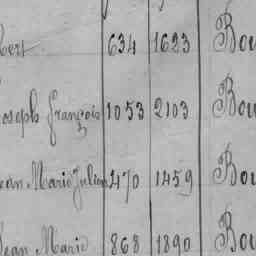 bert 634 1623 Bou
Joseph François 1053 2103 Bou
Jean Marie Julien 470 1459 Bou
Jean Marie 868 1890 Bou